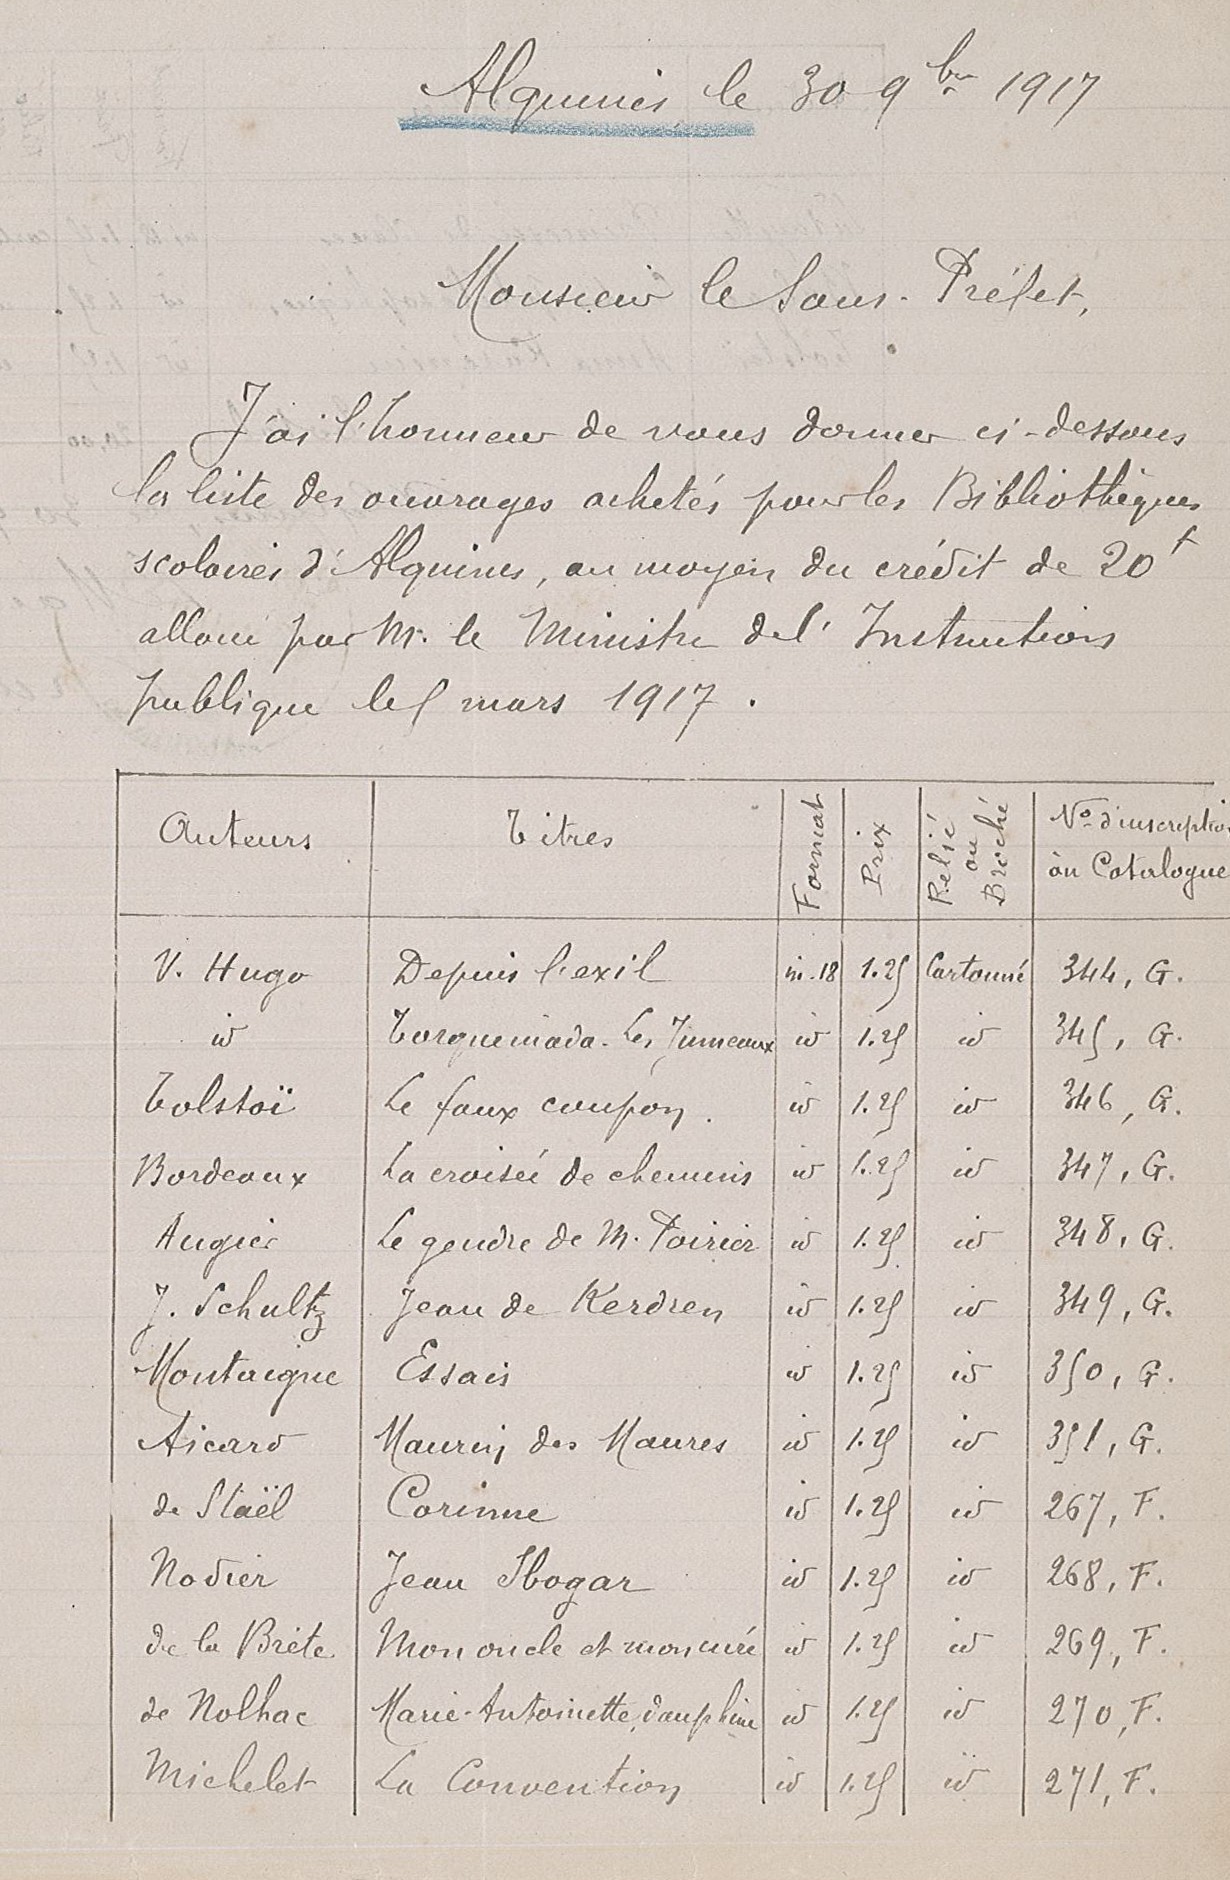 Alquines le 30 9bre 1917
Monsieur le Sous-Préfet,
J'ai l'honneur de vous donner ci-dessous
la liste des ouvrages achetés pour les Bibliothèques
scolaires d'Alquines, au moyen du crédit de 20f
alloué par M. le Ministre de l'Instruction
publique le 5 mars 1917.
Auteurs Titres Format Prix Relié ou Broché No d'inscription au Catalogue
V. Hugo Depuis l'exil in-18 1.25 Cartonné 344, G.
id Torquemada. Les Jumeaux id 1.25 id 345, G.
Tolstoï Le faux coupon. id 1.25 id 346, G.
Bordeaux La croisée de chemins id 1.25 id 347, G.
Augier Le gendre de M. Poirier id 1.25 id 348, G.
J. Schultz Jean de Kerdren id 1.25 id 349, G.
Montaigne Essais id 1.25 id 350, G.
Aicard Maurin des Maures id 1.25 id 351, G.
de Staël Corinne id 1.25 id 267, F.
Nodier Jean Sbogar id 1.25 id 268, F.
de la Brète Mon oncle et mon curé id 1.25 id 269, F.
de Nolhac Marie-Antoinette, dauphine id 1.25 id 270, F.
Michelet La Convention id 1.25 id 271, F.